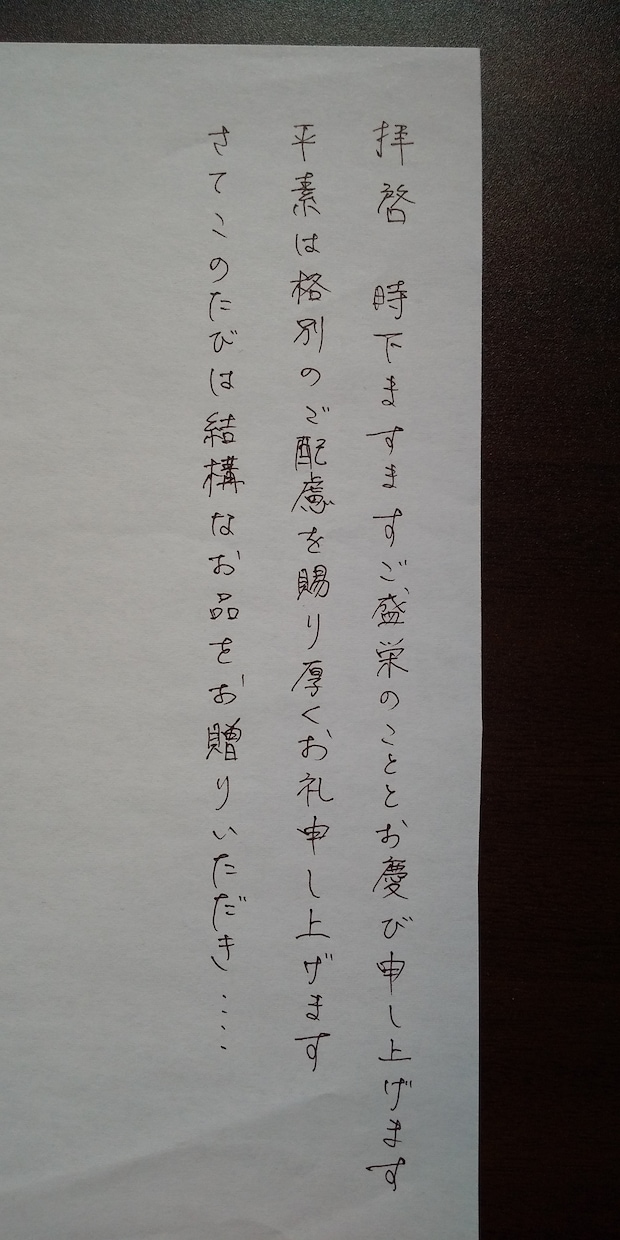 拝啓　時下ますますご盛栄のこととお慶び申し上げます
平素は格別のご配慮を賜り厚くお礼申し上げます
さてこのたびは結構なお品をお贈りいただき‥‥